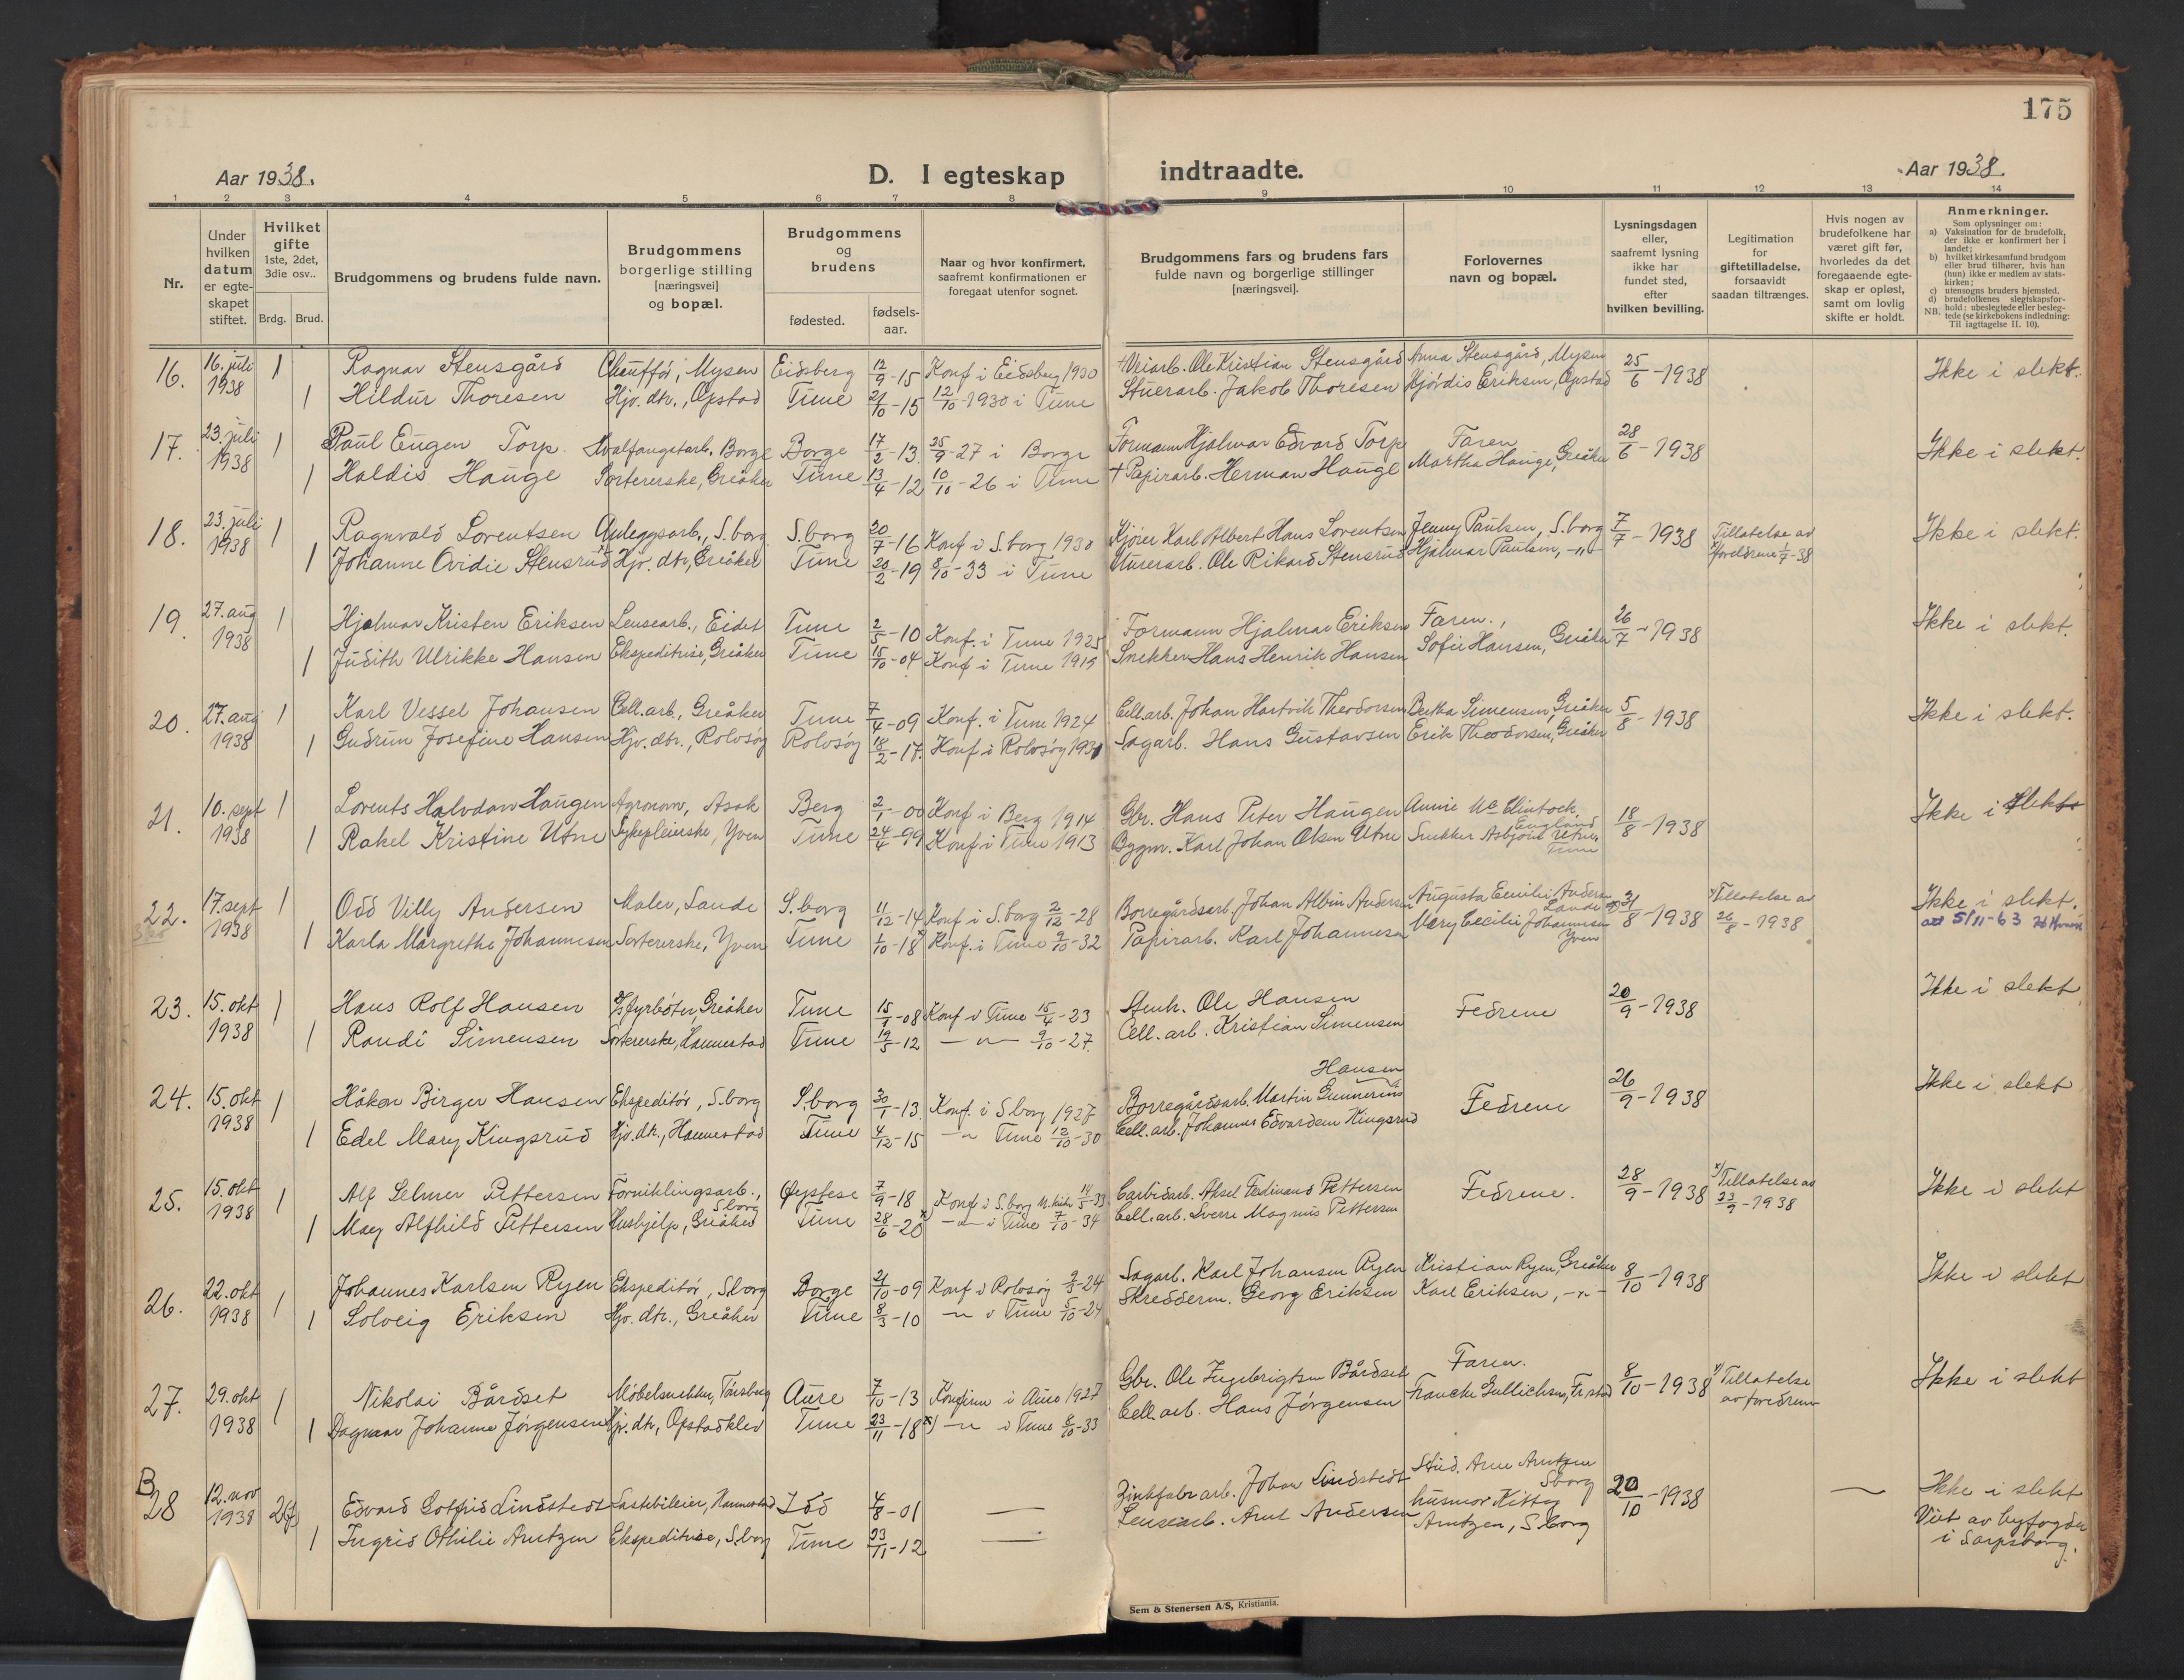 175
Aar 1938.
D. I egteskap indtraadte.
Aar 1938.
1 2 3 4 5 6 7 8 9 10 11 12 13 14
Nr.
Under hvilken datum er egteskapet stiftet.
Hvilket gifte 1ste, 2det, 3die osv..
Brdg. Brud.
Brudgommens og brudens fulde navn.
Brudgommens borgerlige stilling [næringsvei] og bopæl.
Brudgommens og brudens
fødested.
fødsels-aar.
Naar og hvor konfirmert, saafremt konfirmationen er foregaat utenfor sognet.
Brudgommens fars og brudens fars fulde navn og borgerlige stillinger [næringsvei].
Forlovernes navn og bopæl.
Lysningsdagen eller, saafremt lysning ikke har fundet sted, efter hvilken bevilling.
Legitimation for giftetilladelse, forsaavidt saadan tiltrænges.
Hvis nogen av brudefolkene har været gift før, hvorledes da det foregaaende egteskap er opløst, samt om lovlig skifte er holdt.
Anmerkninger.
Som oplysninger om:
a) Vaksination for de brudefolk, der ikke er konfirmert her i landet;
b) hvilket kirkesamfund brudgom eller brud tilhører, hvis han (hun) ikke er medlem av statskirken;
c) utensogns bruders hjemsted.
d) brudefolkenes slegtskapsforhold: ubeslegtede eller beslegtede (se kirkebokens indledning: Til iagttagelse II. 10).
NB.
16. 16. juli 1 Ragnar Stensgård Chauffør, Mysen Eidsberg 12/9-15 Konf i Eidsberg 1930 +Veiarb. Ole Kristian Stensgård Anna Stensgård, Mysen 25/6-1938 Ikke i slekt.
1938 1 Hildur Thoresen Hjv. dtr., Opstad Tune 21/10-15 12/10-1930 i Tune Stuerarb. Jakob Thoresen Hjørdis Eriksen, Opstad
17. 23. juli 1 Paul Eugen Torp. Hvalfangstarb. Borge Borge 17/2-13. 25/9-27 i Borge Formann Hjalmar Edvard Torp Faren 28/6-1938 Ikke i slekt.
1938 1 Haldis Hauge Sortererske, Greåker Tune 13/4-12 10/10-26 i Tune + Papirarb. Herman Hauge Martha Hauge, Greåker
18. 23. juli 1 Ragnvald Lorentsen Anleggsarb., S.borg S.borg 20/7-16 Konf i S.borg 1930 Kjører Karl Albert Hans Lorentsen Jenny Paulsen, S.borg 7/7-1938 Tillatelse av Ikke i slekt.
1938 1 Johanne Ovidie Stensrud Hjv. dtr, Greåker Tune 20/2-19 8/10-33 i Tune Murerarb. Ole Rikard Stensrud Hjalmar Paulsen, -"- foreldrene 1/7-38
19. 27. aug 1 Hjalmar Kristen Eriksen Lensearb., Eidet Tune 2/5-10 Konf. i Tune 1925 Formann Hjalmar Eriksen Faren., 26/7-1938 Ikke i slekt.
1938 1 Judith Ulrikke Hansen Ekspeditrise, Greåker Tune 15/10-04 Konf i Tune 1919 Snekker Hans Henrik Hansen Sofie Hansen, Greåker
20. 27. aug 1 Karl Vessel Johansen Cell.arb., Greåker Tune 7/4-09 Konf. i Tune 1924 Cell.arb. Johan Hartvik Theodorsen Bertha Simensen, Greåker 5/8-1938 Ikke i slekt.
1938 1 Gudrun Josefine Hansen Hjv. dtr., Rolvsøy Rolvsøy 18/2-17. Konf i Rolvsøy 1931 Sagarb. Hans Gustavsen Erik Theodorsen, Greåker
21. 10. sept 1 Lorents Halvdan Haugen Agronom, Asak Berg 2/1-00 Konf i Berg 1914 Gbr. Hans Peter Haugen Annie Mc Clintock, England 18/8-1938 Ikke i slekt
1938 1 Rakel Kristine Utne Sykepleierske, Yven Tune 24/4-99 Konf i Tune 1913 Bygm. Karl Johan Olsen Utne Snekker Asbjørn Utne, Tune
22. 17. sept 1 Odd Villy Andersen Maler, Lande S.borg 11/12-14 Konf i S.borg 2/12-28 Borregårdsarb. Johan Albin Andersen Augusta Emilie Andersen Lande 31/8-1938 Tillatelse av Ikke i slekt.
1938 1 Karla Margrethe Johannesen Sortererske, Yven Tune 1/10-18 Konf. i Tune 9/10-32 Papirarb. Karl Johannesen Mary Cecilie Johannesen Yven 26/8-1938 att 5/11-63
23. 15. okt 1 Hans Rolf Hansen Fyrbøter, Greåker Tune 15/1-08 Konf i Tune 15/4-23 Stenh. Ole Hansen Fedrene 20/9-1938 Ikke i slekt
1938 1 Randi Simensen Sortererske, Hannestad Tune 19/5-12 -"- 9/10-27. Cell. arb. Kristian Simensen
24. 15. okt 1 Håkon Birger Hansen Ekspeditør, S.borg S.borg 30/1-13. Konf. i S.borg 1927 Borregårdsarb. Martin Gunnerius Hansen Fedrene 26/9-1938 Ikke i slekt
1938 1 Edel Mary Kingsrud Hjv.dtr., Hannestad Tune 4/12-15 -"- Tune 12/10-30 Cell. arb. Johannes Edvardsen Kingsrud
25. 15. okt 1 Alf Selmer Pettersen Forniklingsarb., S.borg Øystese 7/9-18 Konf i S.borg M.kirke 14/5-33 Carbidarb. Aksel Ferdinand Pettersen Fedrene. 28/9-1938 x) Tillatelse av Ikke i slekt
1938 1 May Alfhild Pettersen Hushjelp, Greåker Tune 28/6-20 x) -"- i Tune 7/10-34 Cell.arb. Sverre Magnus Pettersen 23/9-1938
26. 22. okt 1 Johannes Karlsen Ryen Ekspeditør, S.borg Borge 21/10-09 Konf i Rolvsøy 9/3-24 Sagarb. Karl Johansen Ryen Kristian Ryen, Greåker 8/10-1938 Ikke i slekt
1938 1 Solveig Eriksen Hjv. dtr., Greåker Tune 8/3-10 -"- i Tune 5/10-24 Skredderm. Georg Eriksen Kari Eriksen, -"-
27. 29. okt 1 Nikolai Bårdset Møbelsnekker, Tønsberg Aure 7/10-13 Konfirm i Aure 1927 Gbr. Ole Ingebrigtsen Bårdset Faren. 8/10-1938 x) Tillatelse Ikke i slekt
1938 1 Dagmar Johanne Jørgensen Hjv. dtr, Opstadklev Tune 23/11-18 x) -"- i Tune 8/10-33 Cell. arb. Hans Jørgensen Francke Gullichsen, Fr.stad av foreldrene
B
28 12. nov 2 Edvard Gotfrid Lindstedt Lastebileier, Hannestad Idd 4/8-01 — Zinkfabr arb. Johan Lindstedt Stud. Arne Arntzen S.borg 20/10-1938 — Ikke i slekt
1938 1 Ingrid Othilie Arntzen Ekspeditrise, S.borg Tune 23/11-12 — Lensearb. Arnt Andersen husmor Kitty Arntzen, S.borg Viet av byfogden i Sarpsborg.
Sem & Stenersen A/S, Kristiania.